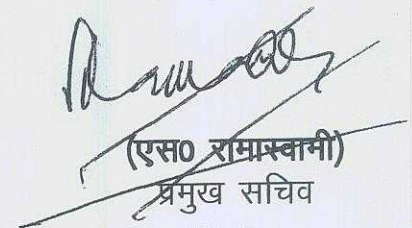 (एस0 रामास्वामी)
प्रमुख सचिव